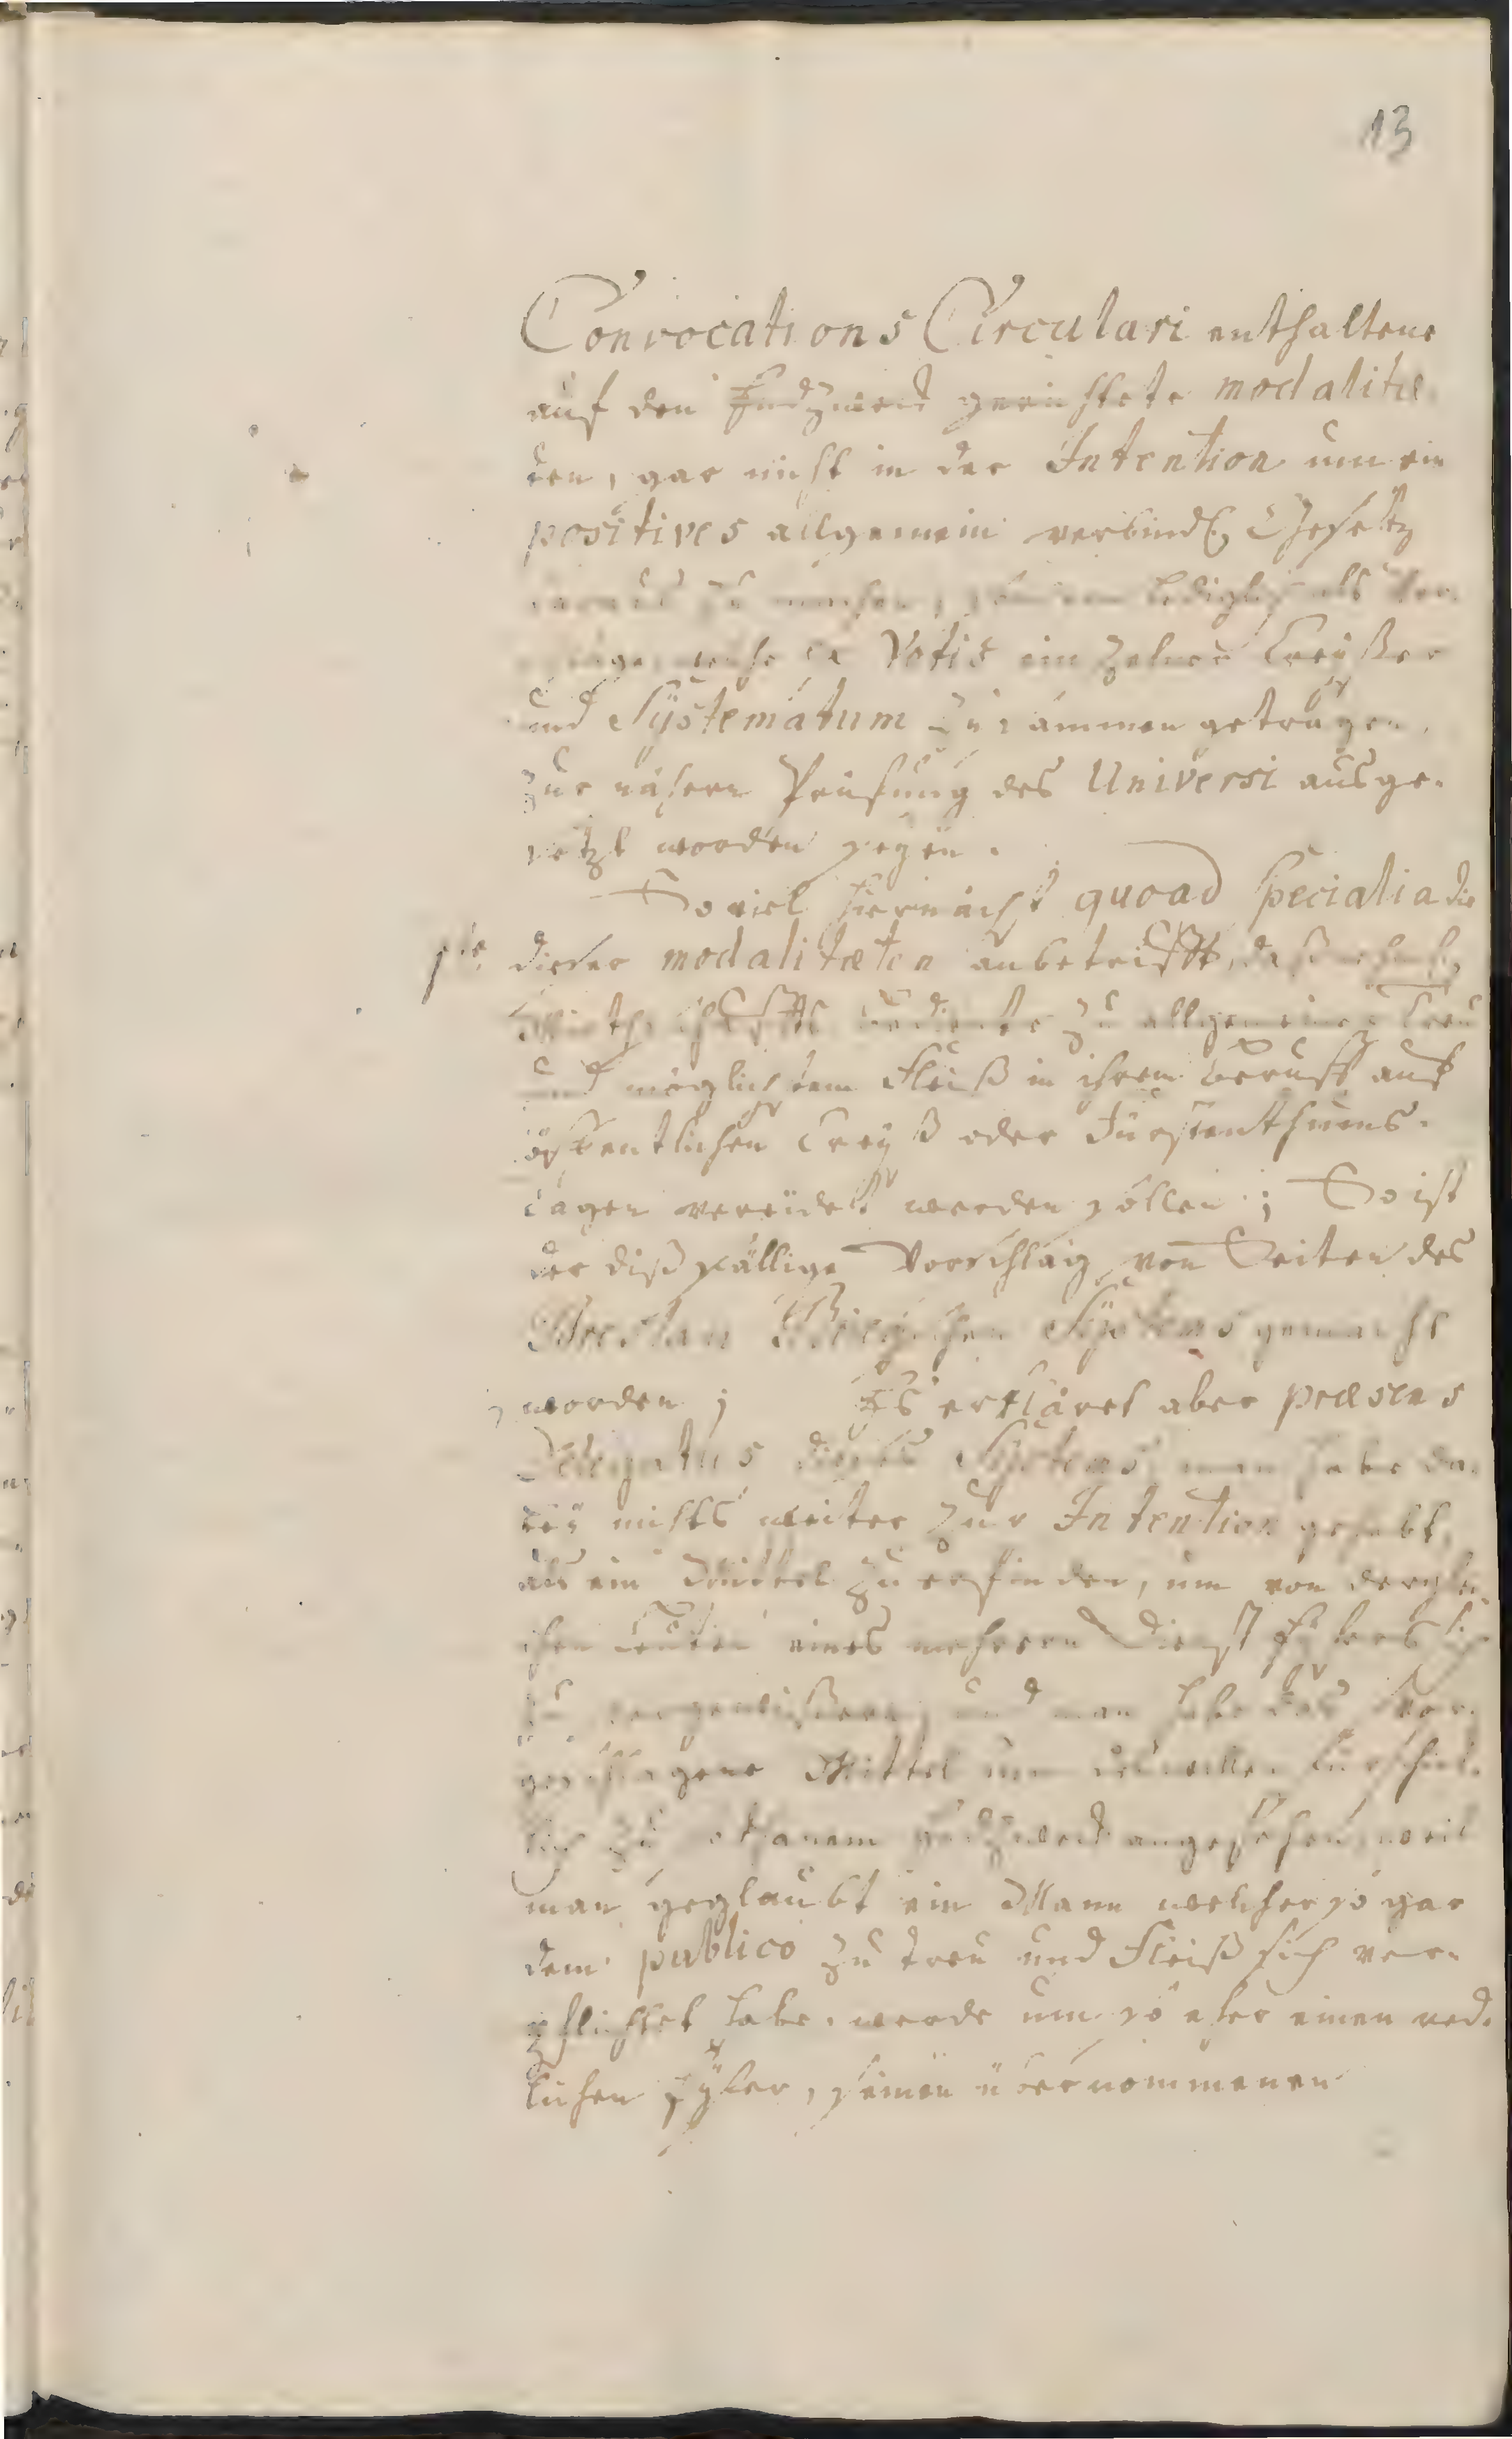 13
Convocations Circulari enthaltene
auf den Endzweck gerichtete modalitæ
ten, gar nicht in der Intention um ein
positives allgemein verbindl. Gesetz
daraus zu machen, sondern lediglich als Vor-
schlags weise ex Votis einzelner Creyßer
und Systematum zusammen getragen,
zur nähern Prüfung des Universi ausge-
setzt worden seyen.
So viel hiernächst quoad Specialia die
1te dieser modalitæten anbetrifft, daß nehml.
Wirthschaffts bediente zu allgemeiner Treu
und möglichstem Fleiß in ihrem Beruff auf
öffentlichen Creyß oder Fürstenthums-
tagen vereidet werden sollen; So ist
der dißfällige Vorschlag von Seiten des
Breslau Briegschen Systems gemacht
worden; Es erkläret aber præsens
Delegatus dieses Systems, man habe da-
bey nichts weiter zur Intention gehabt,
als ein Mittel zu erfinden, um von derglei-
chen Leuten eines mehrern Dienst Eyfers sich
zu vergewißern, und man habe das Vor-
geschlagene Mittel um deswillen für schick-
lich zu Endzweck angesehen, weil
man geglaubt ein Mann welcher so gar
dem publico zu treu und Fleiß sich ver-
pflichtet habe, werde um so eher einen red-
lichen Eyfer, seinen übernommenen